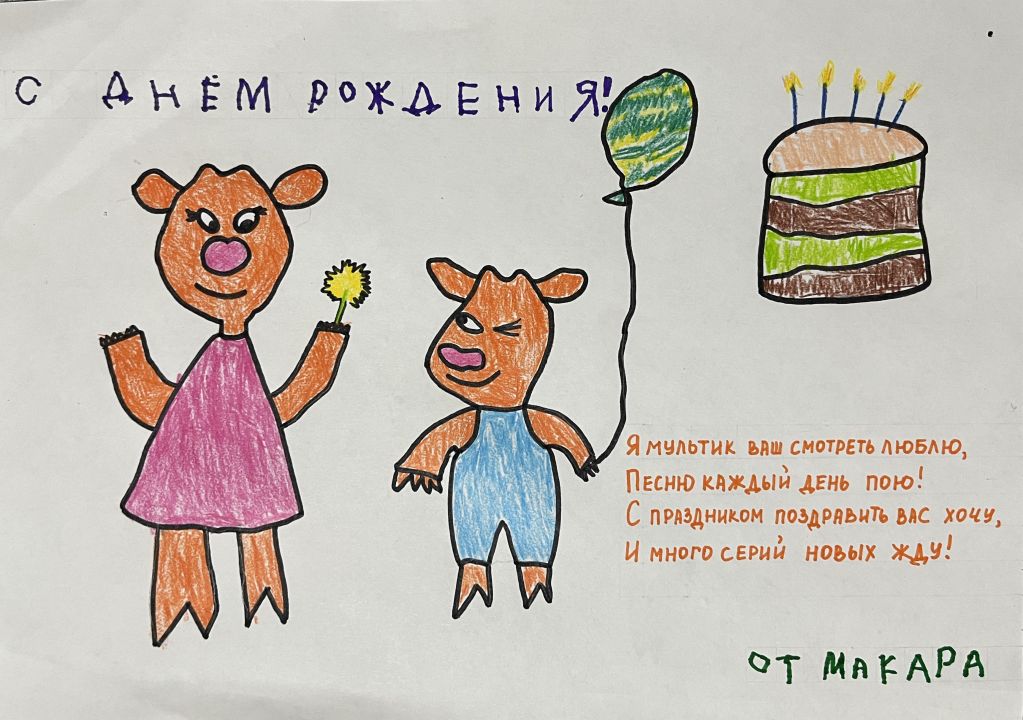 С ДНЁМ РОЖДЕНИЯ!
Я МУЛЬТИК ВАШ СМОТРЕТЬ ЛЮБЛЮ,
ПЕСНЮ КАЖДЫЙ ДЕНЬ ПОЮ!
С ПРАЗДНИКОМ ПОЗДРАВИТЬ ВАС ХОЧУ,
И МНОГО СЕРИЙ НОВЫХ ЖДУ!
ОТ МАКАРА